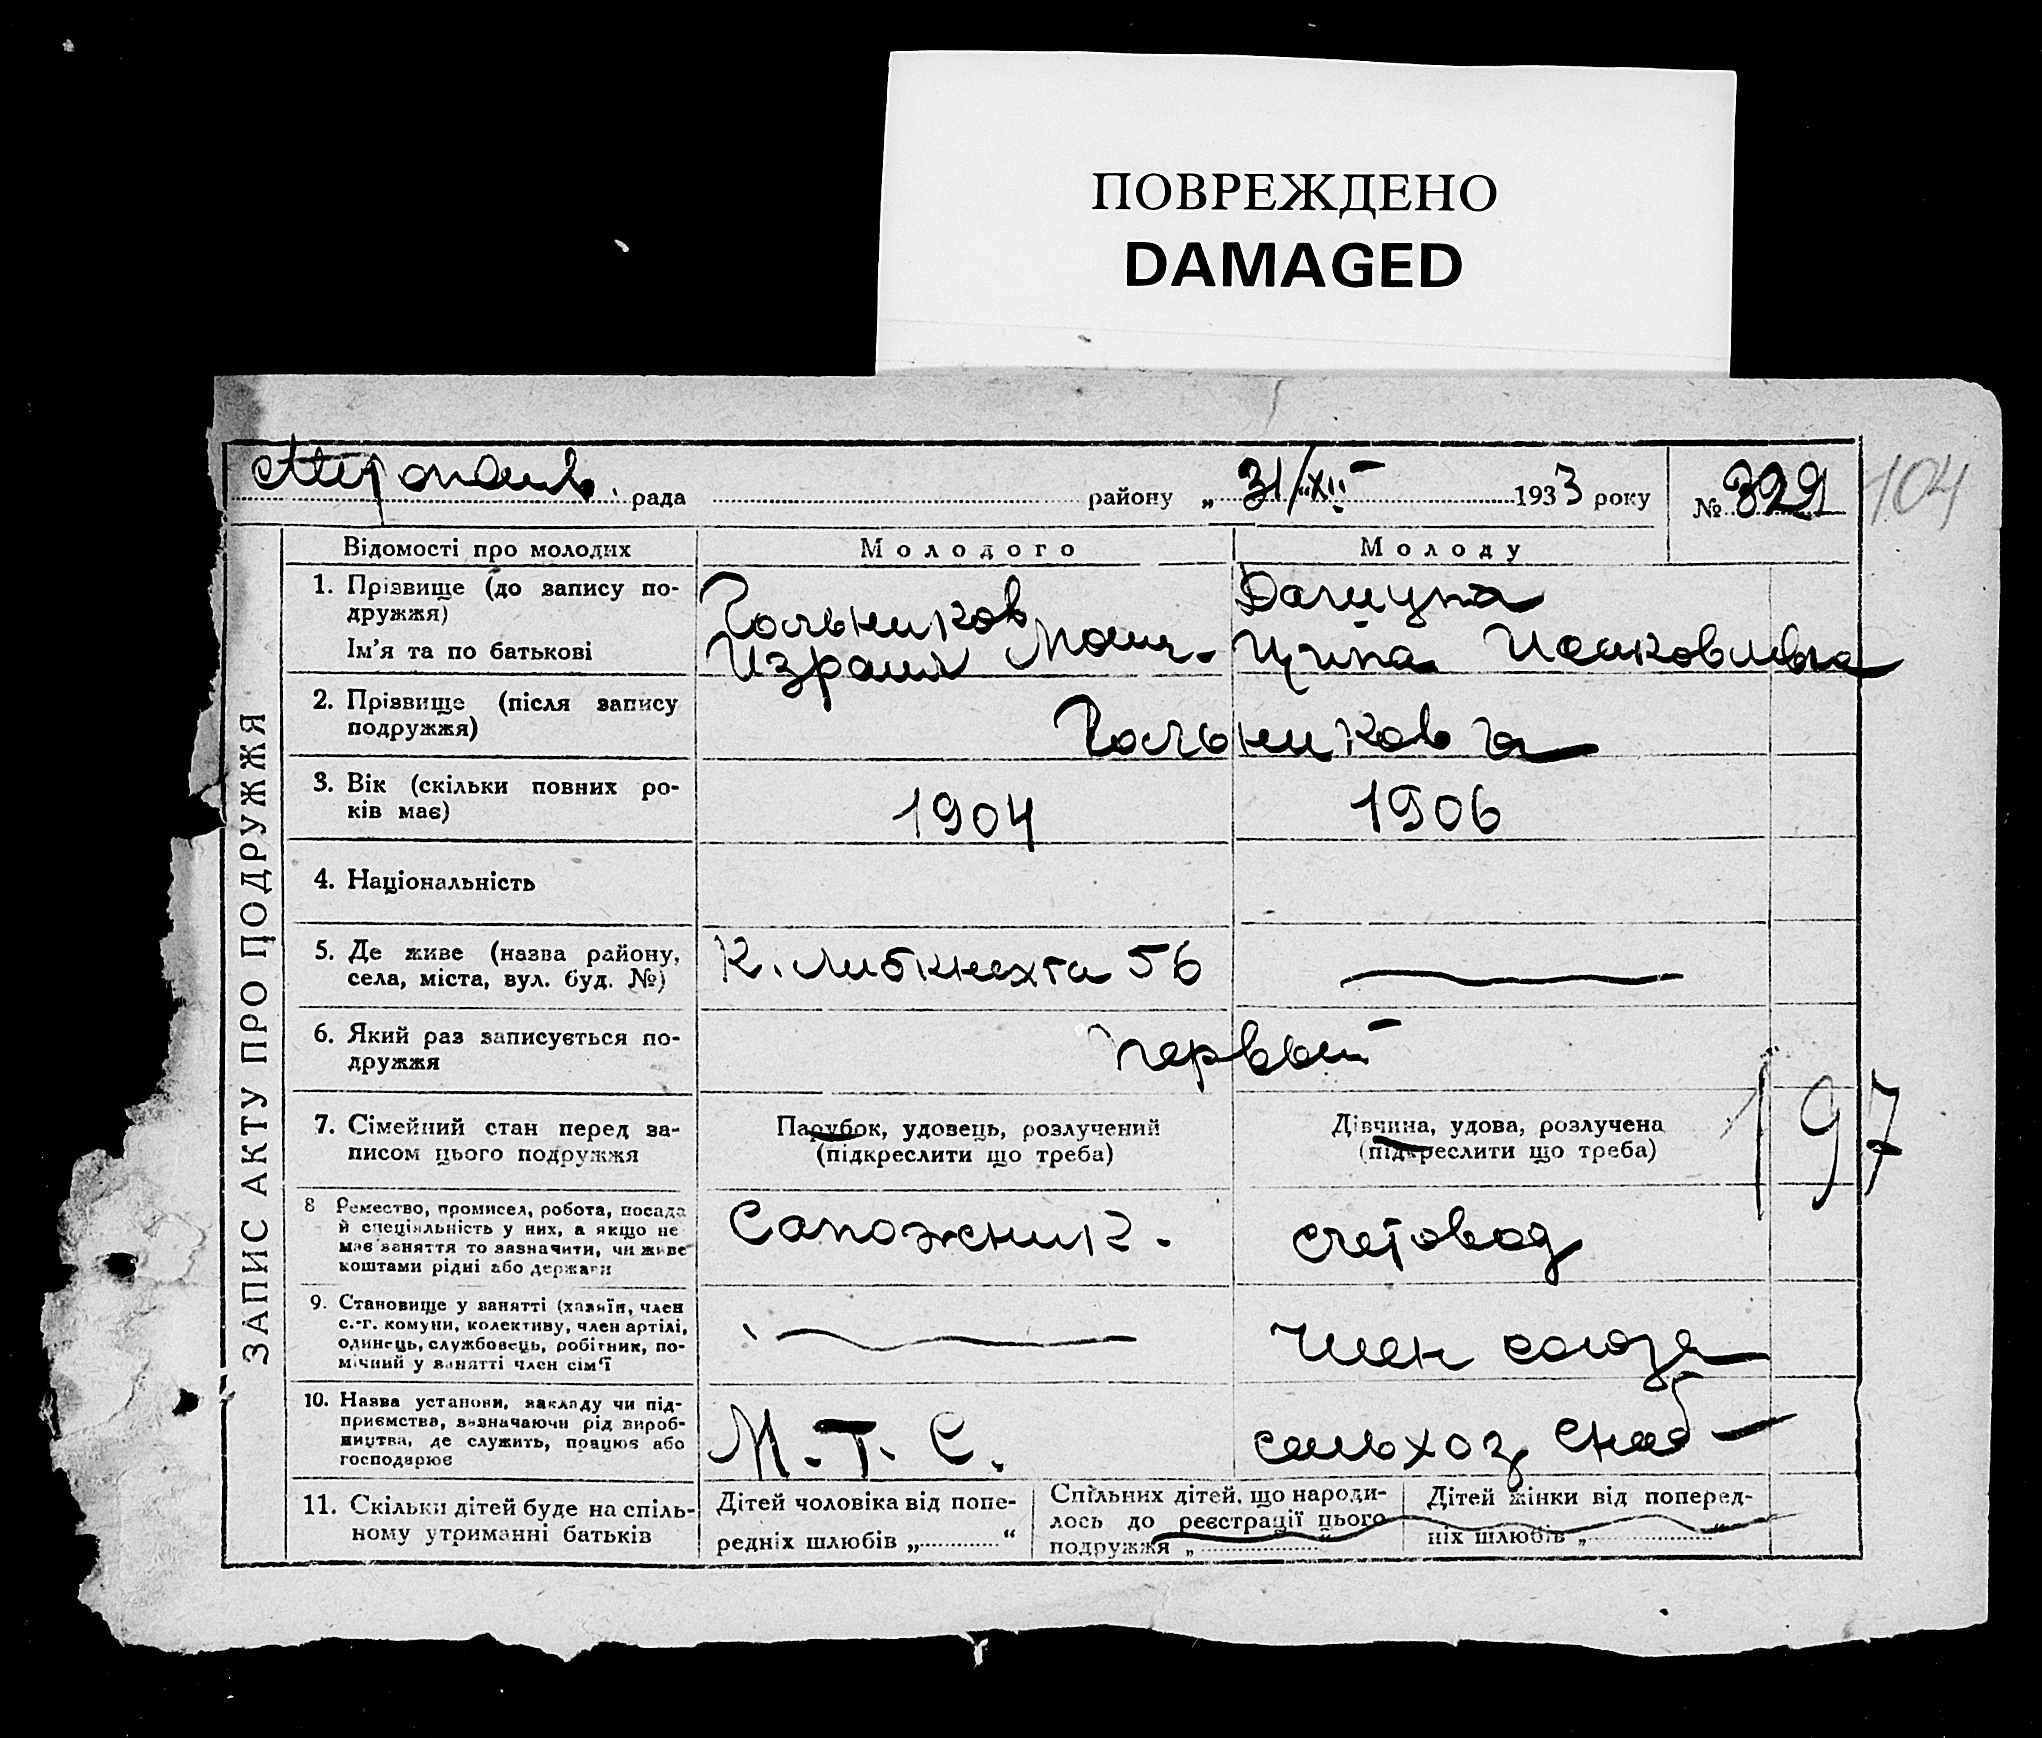 ПОВРЕЖДЕНО
DAMAGED
рада району „ 31/XII 1933 року № 329 104
ЗАПИС АКТУ ПРО ПОДРУЖЖЯ
Відомості про молодих Молодого Молоду
1. Прізвище (до запису по-
дружжя)
Ім'я та по батькові
Гольников
Израиль Моис.
Исаковлевна
2. Прізвище (після запису
подружжя)
Гольникова
3. Вік (скільки повних ро-
ків має)
1904 1906
4. Національність
5. Де живе (назва району,
села, міста, вул. буд. №)
К. Либкнехта 56
6. Який раз записується по-
дружжя
первый
7. Сімейний стан перед за-
писом цього подружжя
Парубок, удовець, розлучений
(підкреслити що треба)
Дівчина, удова, розлучена
(підкреслити що треба)
197
8 Ремество, промисел, робота, посада
й спеціяльність у них, а якщо не
має заняття то зазначити, чи живе
коштами рідні або держави
Сапожник. счетовод
9. Становище у занятті (хазяїн, член
с.-г. комуни, колективу, член артілі,
одинець, службовець, робітник, по-
мічний у занятті член сім'ї
член союза
10. Назва установи, закладу чи під-
приємства, зазначаючи рід вироб-
ництва, де служить, працює або
господарює
М.Т.С. сельхоз снаб
11. Скільки дітей буде на спіль-
ному утриманні батьків
Дітей чоловіка від попе-
редніх шлюбів „ “
Спільних дітей, що народи-
лось до реєстрації цього
подружжя „ “
Дітей жінки від поперед-
ніх шлюбів „ “